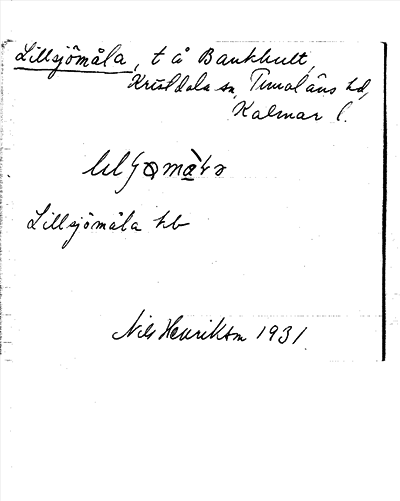 Lillsjömåla, t å Bankhult,
Kristdala sn, Tunaläns hd,
Kalmar l.
Lillsjömåla hb
Nils Henrikson 1931